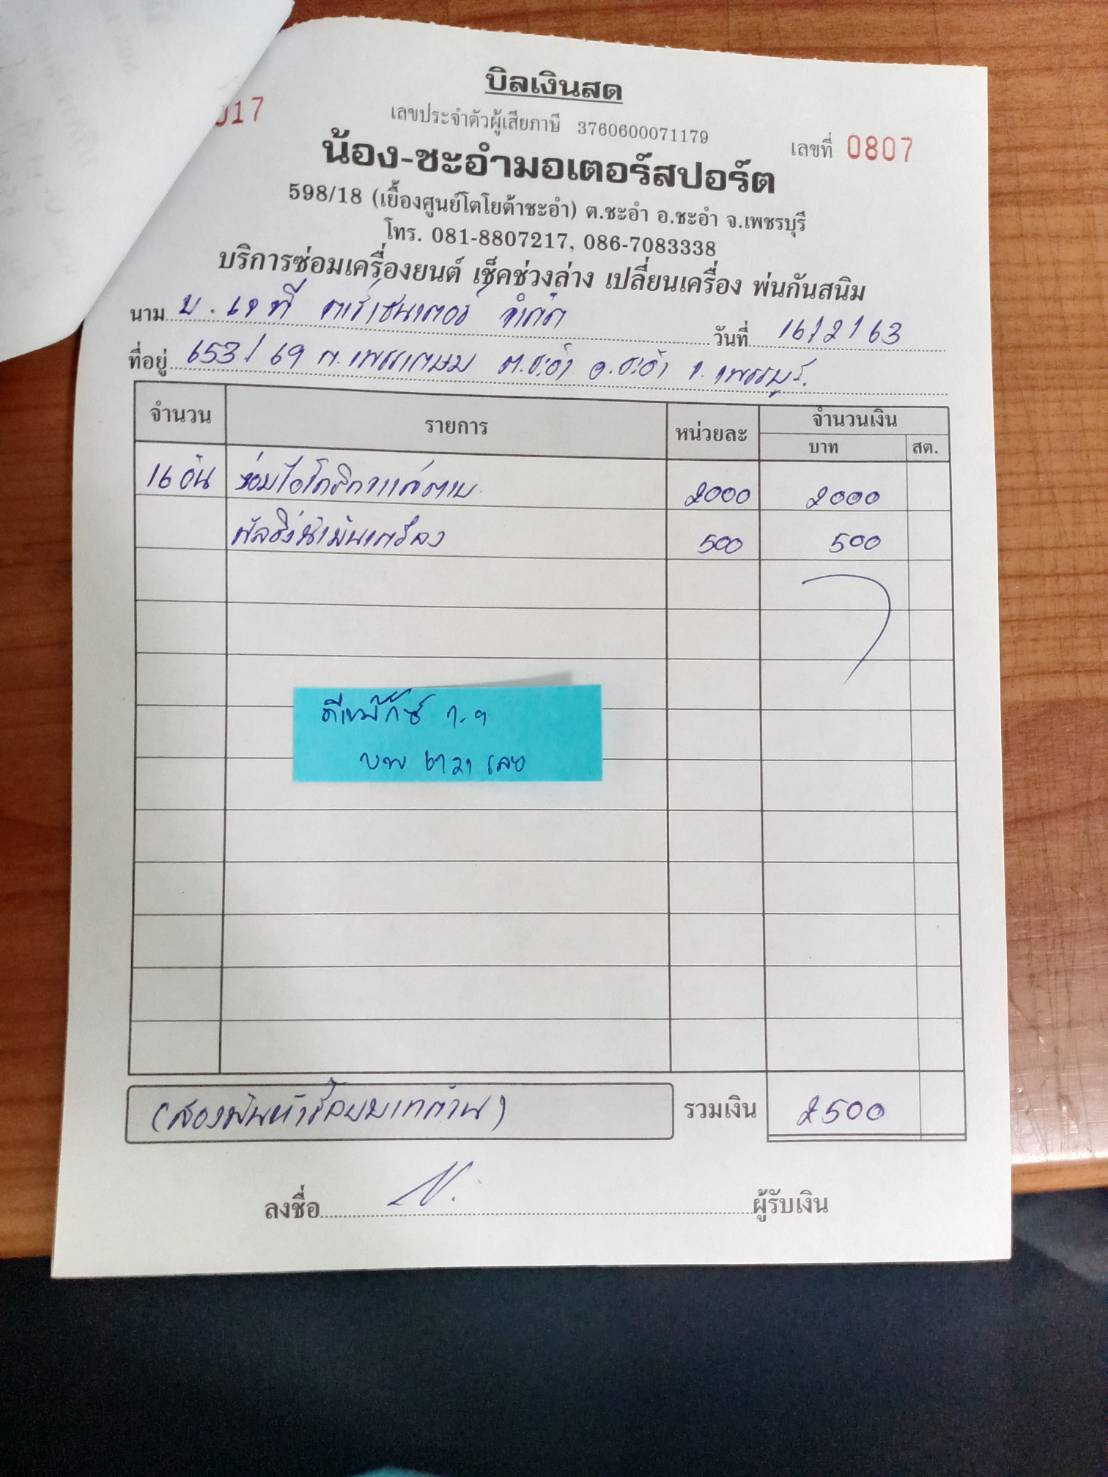 บิลเงินสด
017
เลขประจำตัวผู้เสียภาษี 3760600071179
เลขที่ 0807
น้อง-ชะอำมอเตอร์สปอร์ต
598/18 (เยื้องศูนย์โตโยต้าชะอำ) ต.ชะอำ อ.ชะอำ จ.เพชรบุรี
โทร. 081-8807217, 086-7083338
บริการซ่อมเครื่องยนต์ เช็คช่วงล่าง เปลี่ยนเครื่อง พ่นกันสนิม
นาม บ. เจ ที จำกัด
วันที่ 16/2/63
ที่อยู่ 653/69 ถ.เพชรเกษม ต.ชะอำ อ.ชะอำ จ.เพชรบุรี
จำนวน รายการ หน่วยละ จำนวนเงิน
บาท สต.
16 2000 2000
500 500
รวมเงิน 2500
(สองพันห้าร้อยบาทถ้วน)
ลงชื่อ ผู้รับเงิน